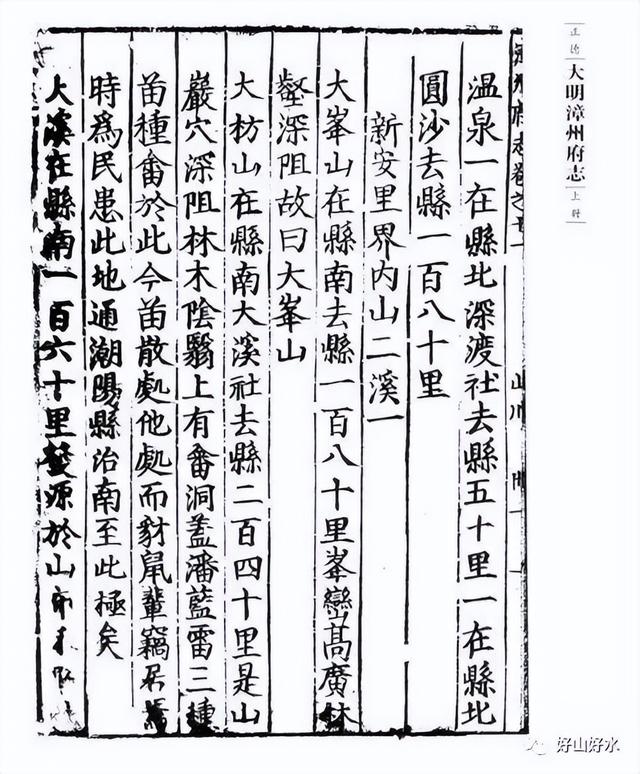 正德
大明漳州府志
上册
府志卷之七
山川
温泉一在縣北深渡社去縣五十里一在縣北
圓沙去縣一百八十里
新安里界内山二溪一
大峯山在縣南去縣一百八十里峯巒高廣林
壑深阻故曰大峯山
大枋山在縣南大溪社去縣二百四十里是山
巖穴深阻林木陰翳上有畬洞蓋潘藍雷三種
苗種畬於此今苗散處他處而豺鼠輩竊居焉
時爲民患此地通潮陽縣治南至此極矣
大溪在縣南一百六十里發源於山
好山好水